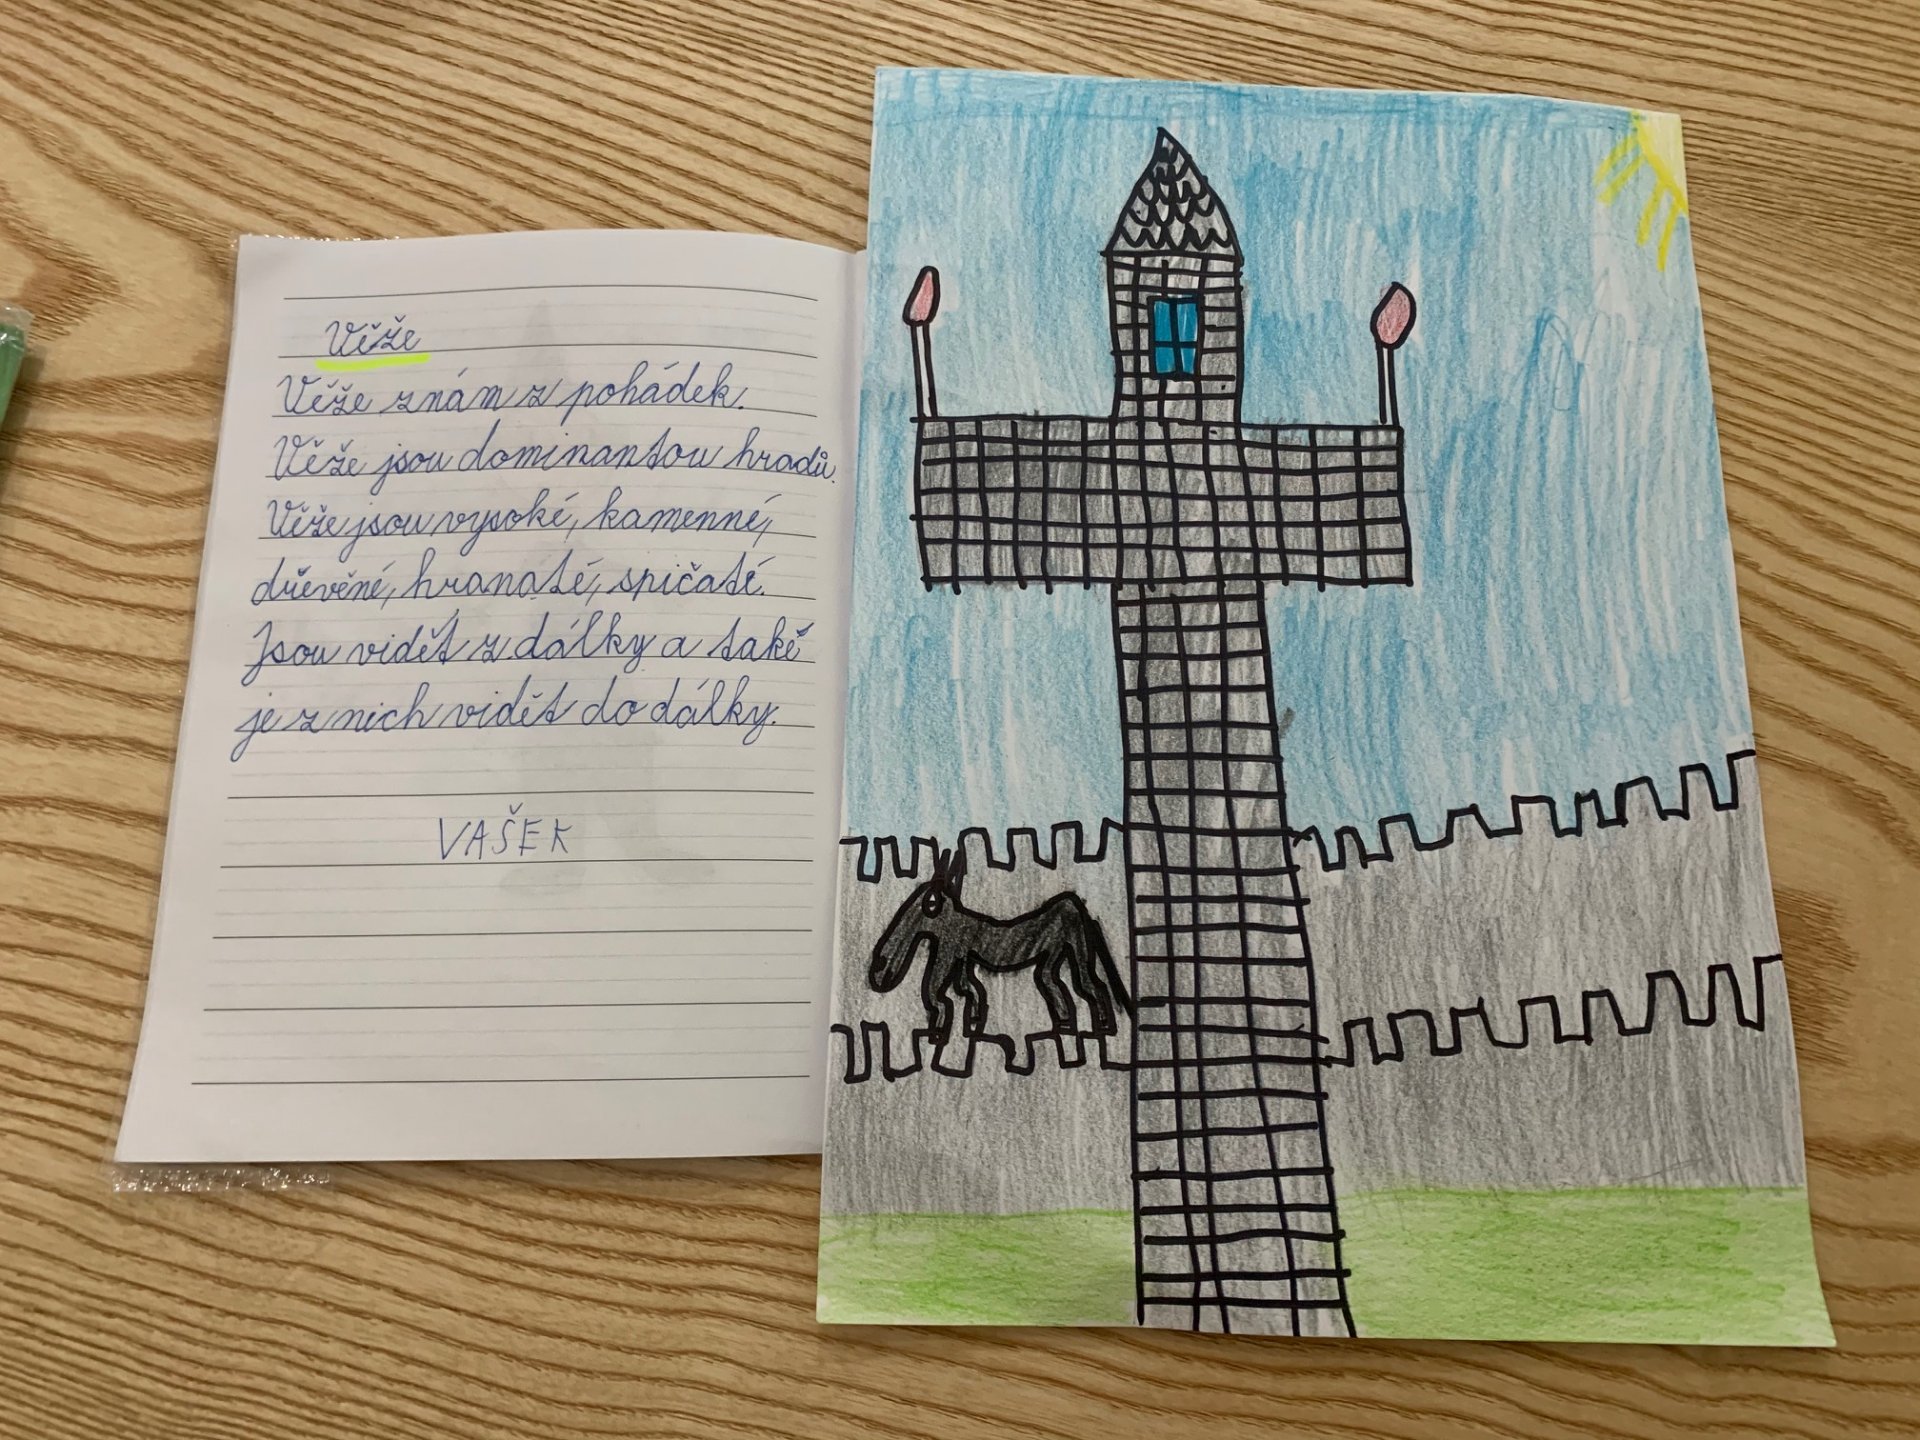 Věže
Věže znám z pohádek.
Věže jsou dominantou hradů.
Věže jsou vysoké, kamenné,
dřevěné, hranaté, spičaté.
Jsou vidět z dálky a také
je z nich vidět do dálky.
VAŠEK